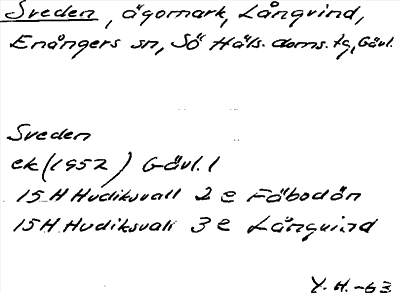 Sveden, ägomark, Långvind,
Enångers sn, Sö Häls. doms. tg, Gävl.
Sveden
ek (1952) Gävl. l
15 H Hudiksvall 2 e Fäbodön
15 H Hudiksvall 3 e Långvind
Y. H. -63